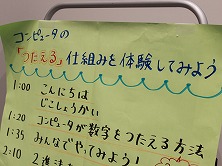 コンピュータの
「つたえる」仕組みを体験してみよう
1:00 こんにちは
じこしょうかい
1:20 コンピュータが数字をつたえる方法
1:35 みんなでやってみよう!
2:10 2進法